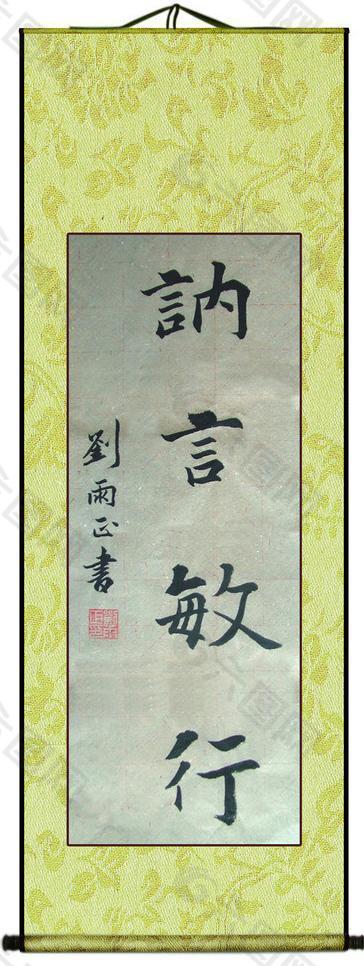 訥言敏行
劉雨正書